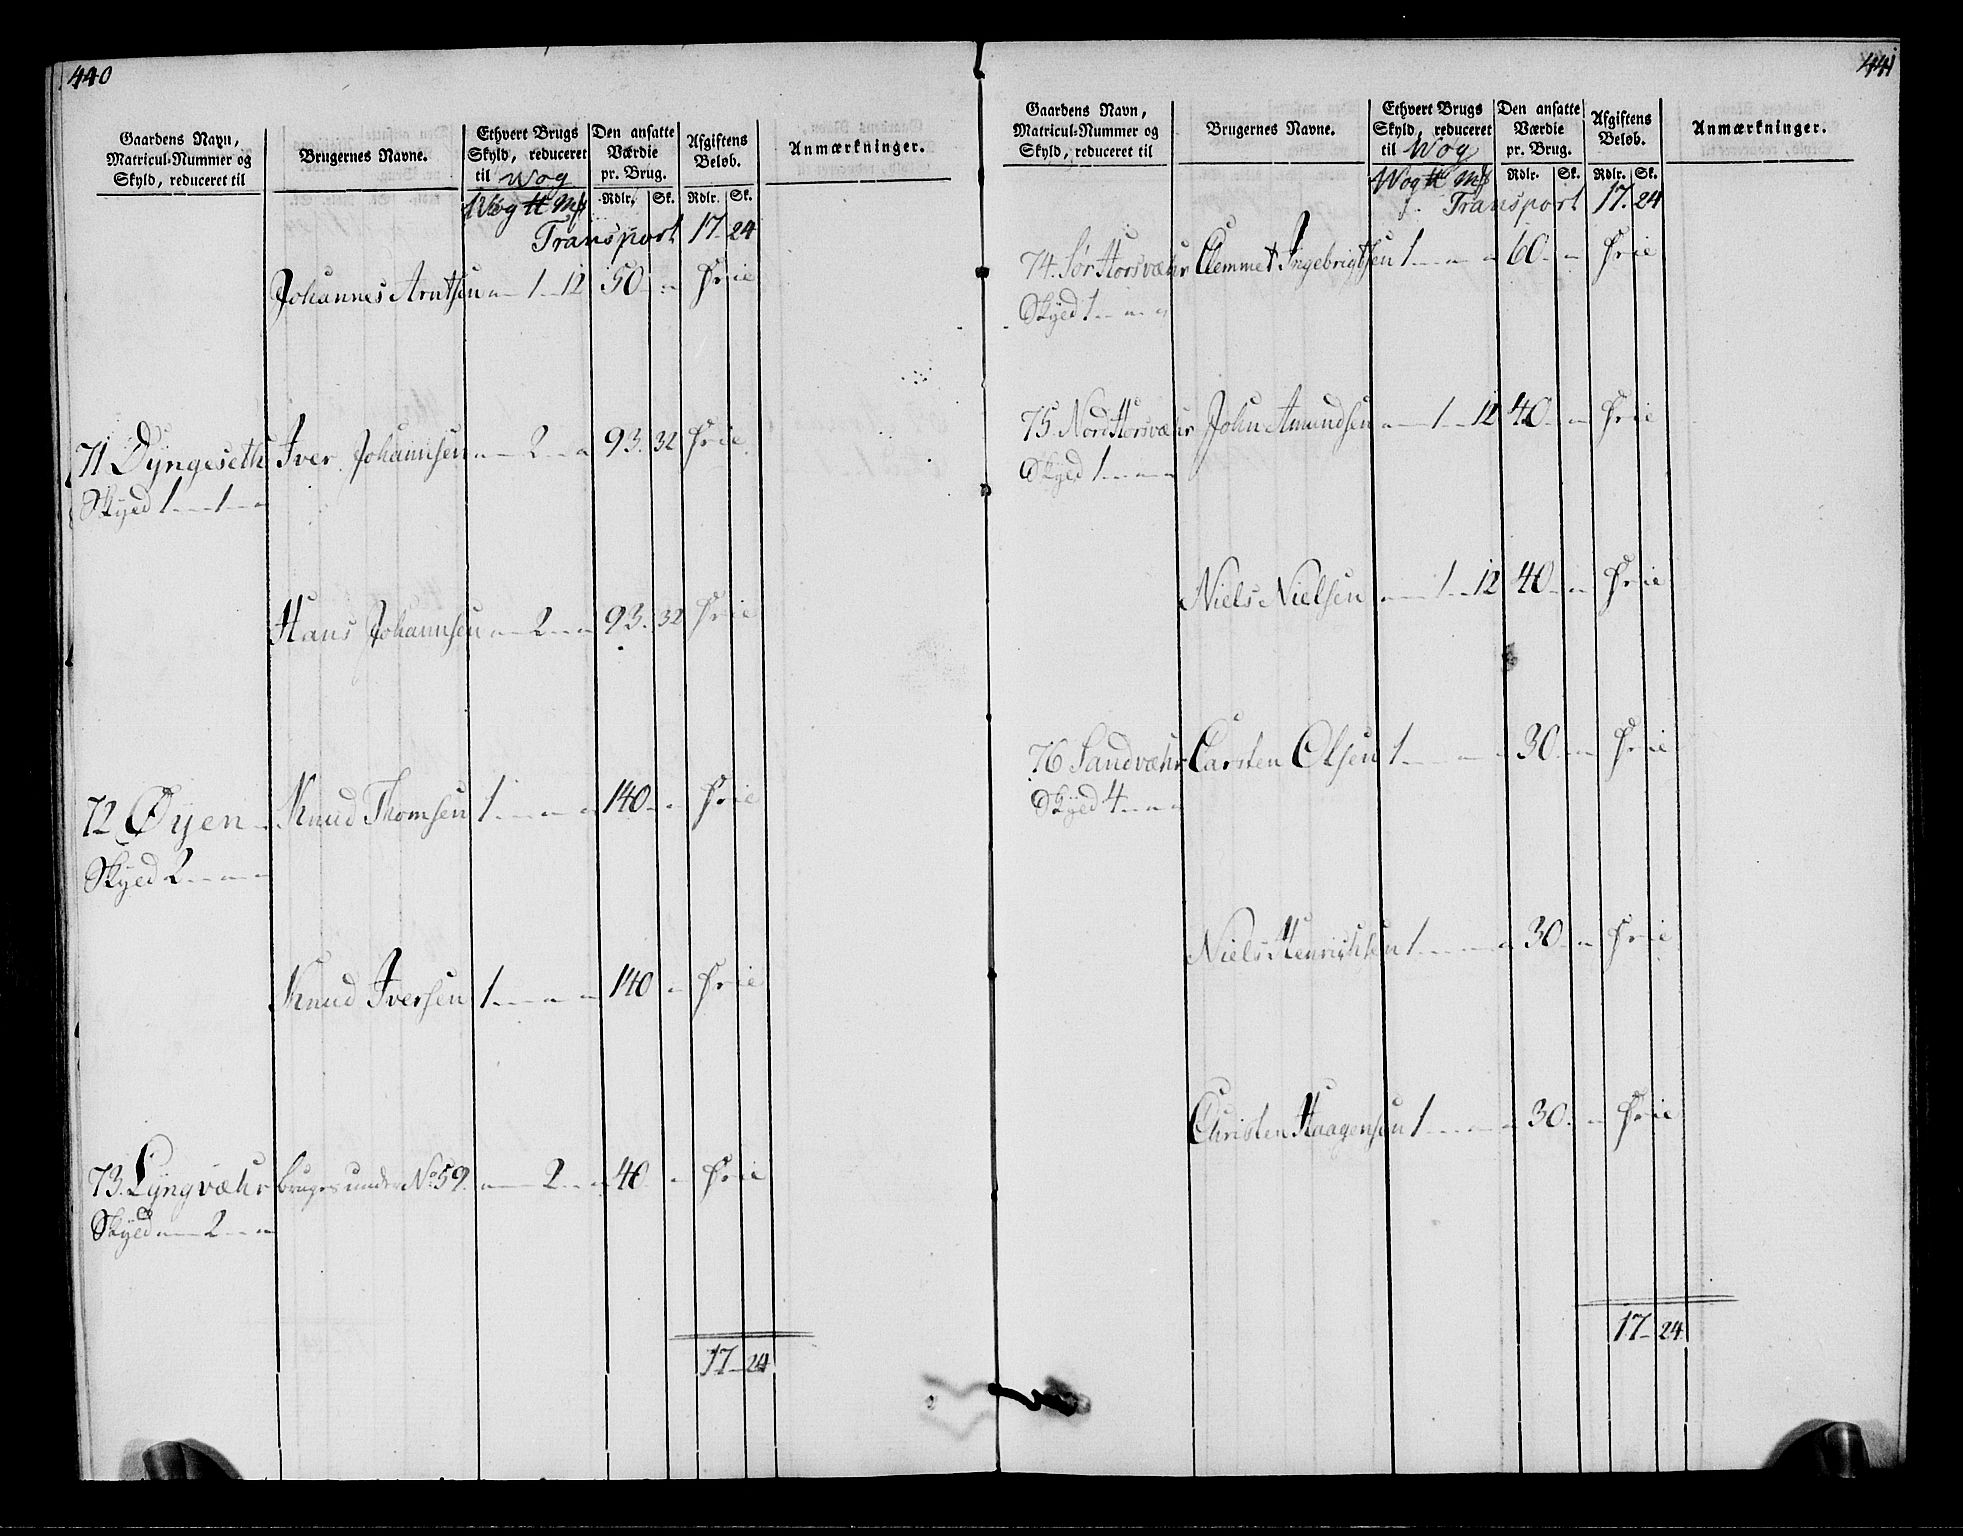 440
Gaardens Navn, Matricul-Nummer og Skyld, reduceret til
Brugernes Navne.
Ethvert Brugs Skyld, reduceret til Wog
Den ansatte Værdie pr. Brug.
Afgiftens Beløb.
Anmærkninger.
Wog ℔ Mk Rdlr. Sk. Rdlr. Sk.
Transport 17. 24
Johannes Arntsen " 1 12 50 " Frie
71 Dyngeseth Iver Johannsen " 2 " 93. 32 Frie
Skyed 1 1 "
Hans Johannsen " 2 " 93. 32 Frie
72 Øyen Knud Thomsen 1 " " 140 " Frie
Skyed 2 " "
Knud Iversen 1 " " 140 " Frie
73. Lyngvæhr bruges under No 59. " 2 " 40 " Frie
Skyed " 2 "
17 24
441
Gaardens Navn, Matricul-Nummer og Skyld, reduceret til
Brugernes Navne.
Ethvert Brugs Skyld, reduceret til Wog
Den ansatte Værdie pr. Brug.
Afgiftens Beløb.
Anmærkninger.
Wog ℔ Mk Rdlr. Sk. Rdlr. Sk.
Transport 17. 24
74. Sør Horsvæhr Clemmet Ingebrigtsen 1 " " 60 " Frie
Skyed 1 " "
75. Nord Horsvæhr John Amundsen " 1 12 40 " Frie
Skyed 1 " "
Niels Nielsen " 1 12 40 " Frie
76 Sandvæhr Carsten Olsen 1 " " 30 " Frie
Skyed 4 " "
Niels Henrichsen 1 " " 30 " Frie
Christen Haagensen 1 " " 30 " Frie
17 24